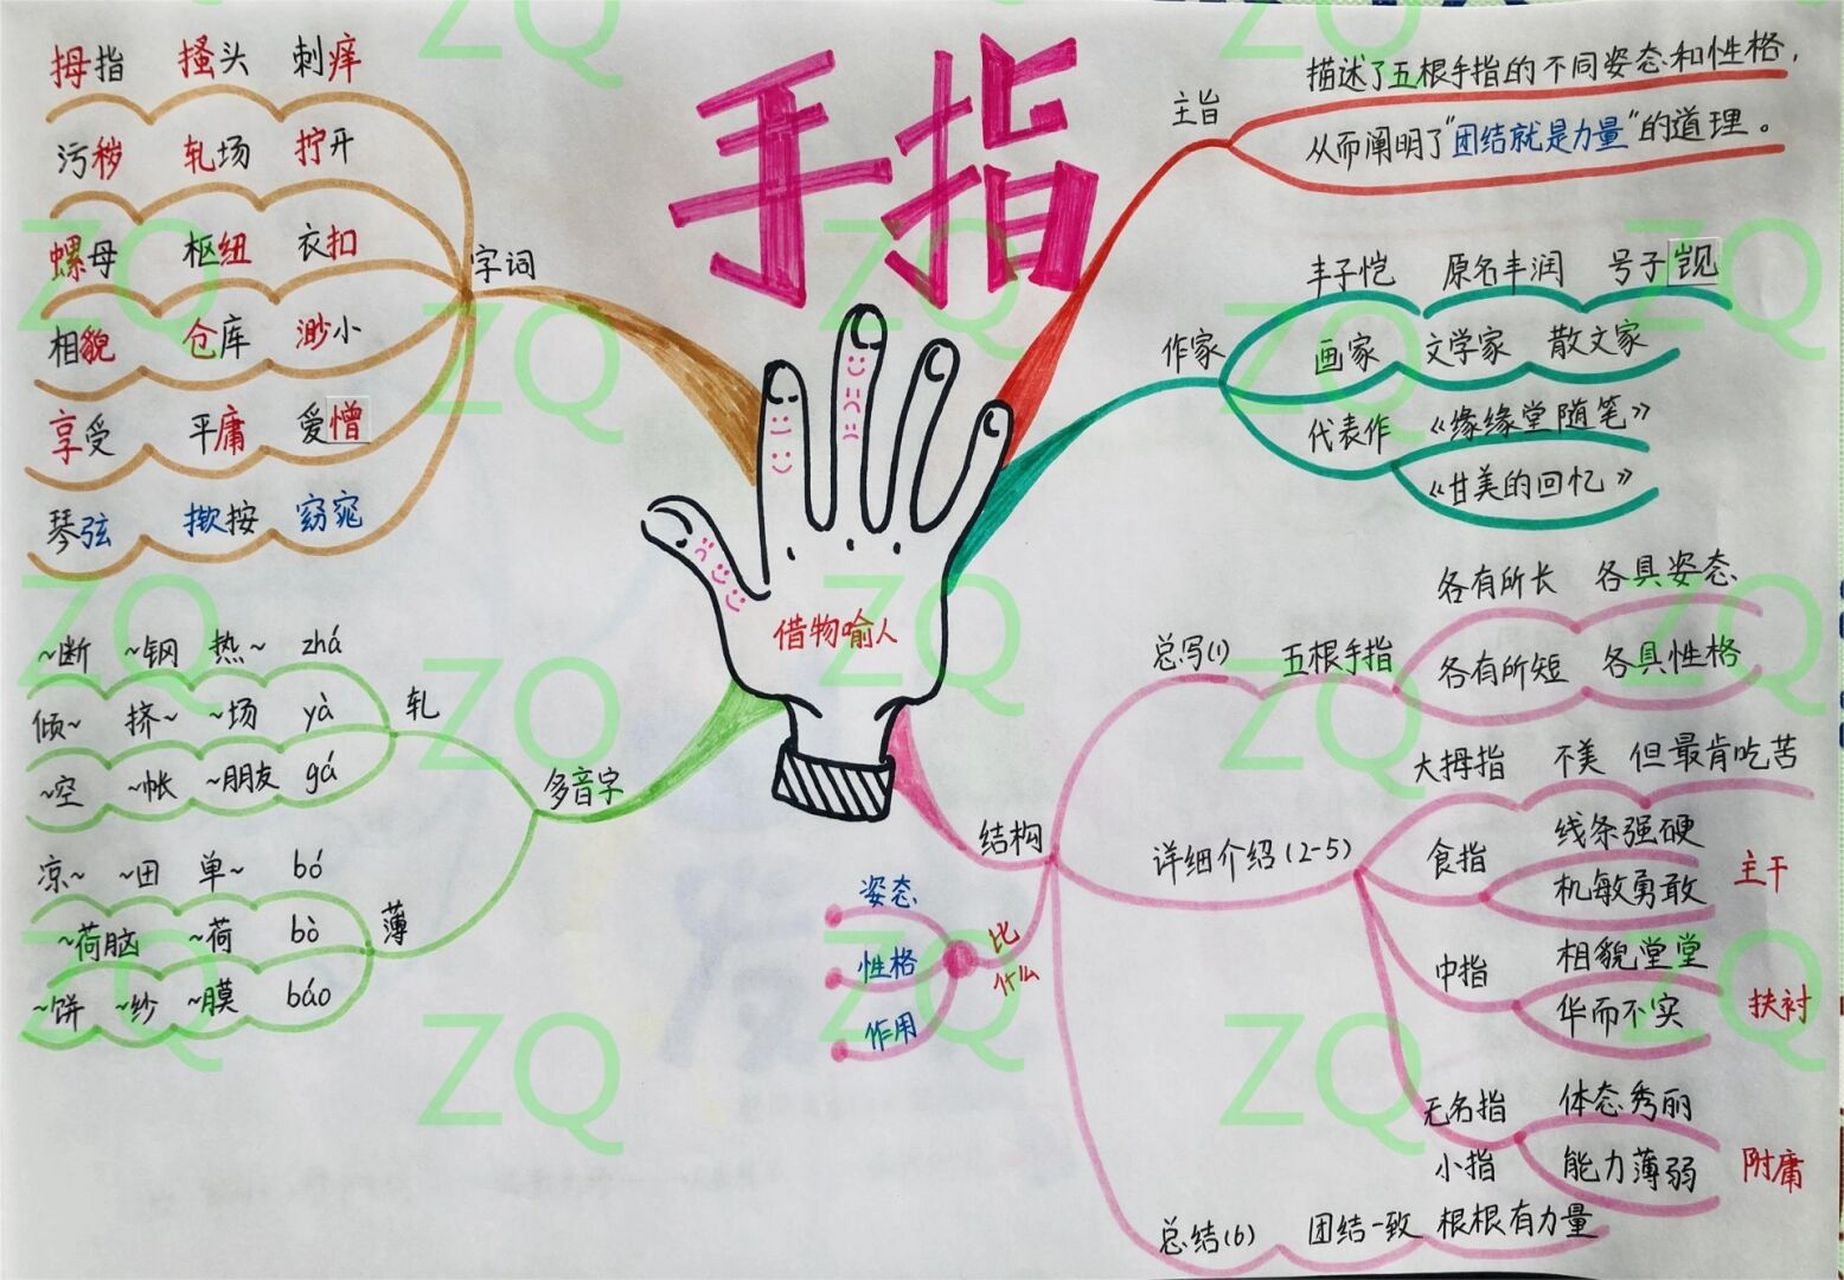 手指
借物喻人
字词
拇指 搔头 刺痒
污秽 轧场 拧开
螺母 枢纽 衣扣
相貌 仓库 渺小
享受 平庸 爱憎
琴弦 揿按 窈窕
多音字
轧
~断 ~钢 热~ zhá
倾~ 挤~ ~场 yà
~空 ~帐 ~朋友 gá
薄
凉~ ~田 单~ bó
~荷脑 ~荷 bò
~饼 ~纱 ~膜 báo
主旨
描述了五根手指的不同姿态和性格，
从而阐明了"团结就是力量"的道理。
作家
丰子恺 原名丰润 号子觊
画家 文学家 散文家
代表作 《缘缘堂随笔》
《甘美的回忆》
结构
总写(1) 五根手指
各有所长 各具姿态
各有所短 各具性格
详细介绍(2-5)
大拇指 不美 但最肯吃苦
食指
线条强硬
机敏勇敢
主干
中指
相貌堂堂
华而不实
扶衬
无名指
小指
体态秀丽
能力薄弱
附庸
总结(6) 团结一致 根根有力量
比什么
姿态
性格
作用
ZQ ZQ ZQ ZQ ZQ ZQ ZQ ZQ ZQ ZQ ZQ ZQ ZQ ZQ ZQ ZQ ZQ